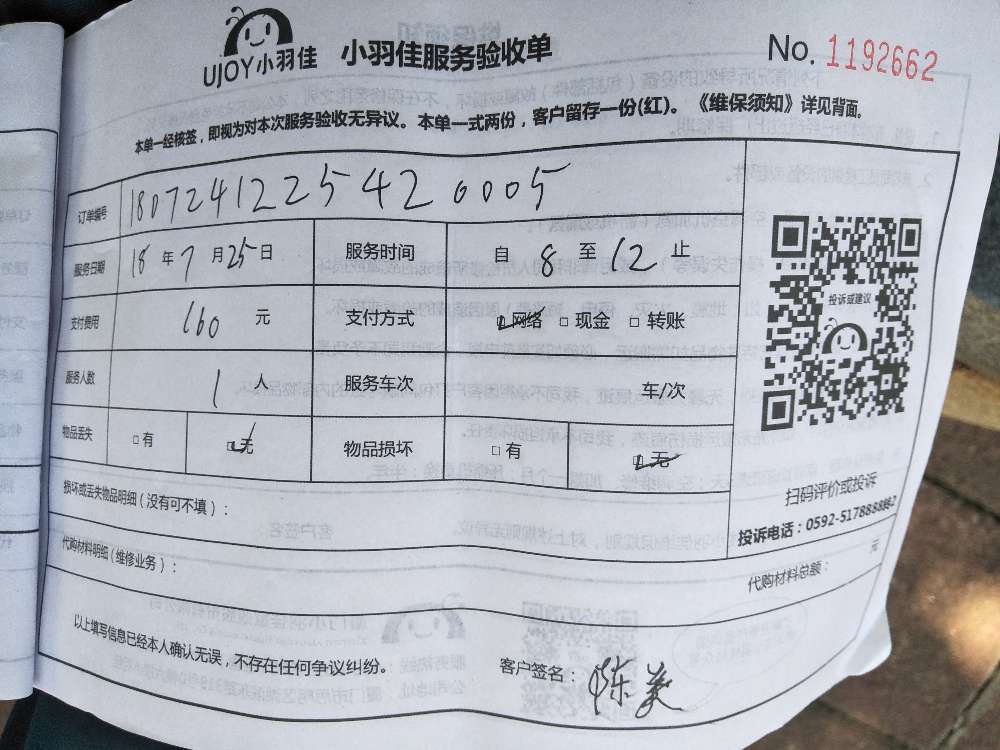 UJOY小羽佳 小羽佳服务验收单 No. 1192662
本单一经核签，即视为对本次服务验收无异议。本单一式两份，客户留存一份(红)。《维保须知》详见背面。
订单编号 180724122542 0005
服务日期 18 年 7 月 25 日 服务时间 自 8 至 12 止
支付费用 160 元 支付方式 ☑网络 □现金 □转账
投诉或建议
服务人数 1 人 服务车次 车/次
物品丢失 □有 ☑无 物品损坏 □有 ☑无
扫码评价或投诉
投诉电话：0592-5178888
损坏或丢失物品明细（没有可不填）：
代购材料明细（维修业务）： 代购材料总额： 元
以上填写信息已经本人确认无误，不存在任何争议纠纷。 客户签名： 陈美